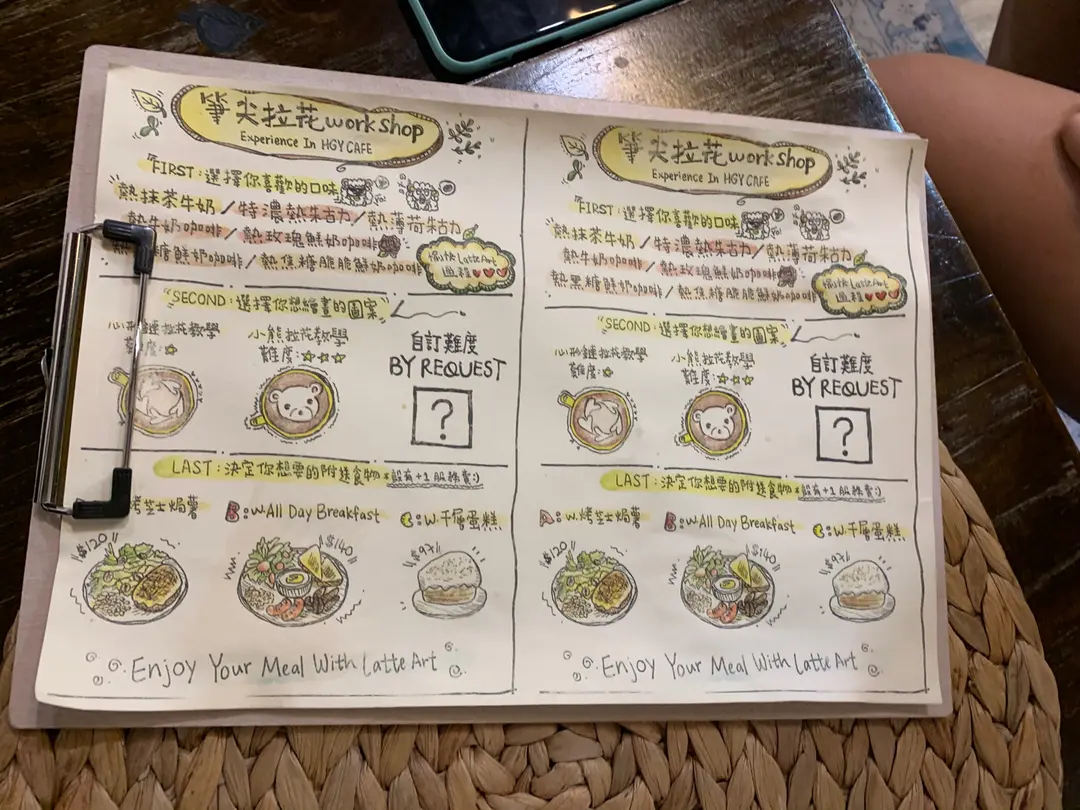 筆尖拉花workshop
Experience In HGY CAFE
FIRST:選擇你喜歡的口味
熱抹茶牛奶/特濃熱朱古力/熱薄荷朱古力
熱牛奶咖啡/熱玫瑰鮮奶咖啡
糖鮮奶咖啡/熱焦糖脆脆鮮奶咖啡
愉快LatteArt
過程
"SECOND:選擇你想繪畫的圖案"
心形鏈拉花教學
難度:☆
小熊拉花教學
難度:☆☆☆
自訂難度
BY REQUEST
?
LAST:決定你想要的附送食物*設有+1服務費:)
烤芝士焗薯
B:w.All Day Breakfast
C:w.千層蛋糕
$120
$140
$97
Enjoy Your Meal With Latte Art
筆尖拉花workshop
Experience In HGY CAFE
"FIRST:選擇你喜歡的口味
熱抹茶牛奶/特濃熱朱古力/熱薄荷朱古力
熱牛奶咖啡/熱玫瑰鮮奶咖啡
熱黑糖鮮奶咖啡/熱焦糖脆脆鮮奶咖啡
愉快LatteArt
過程
"SECOND:選擇你想繪畫的圖案"
心形鏈拉花教學
難度:☆
小熊拉花教學
難度:☆☆☆
自訂難度
BY REQUEST
?
LAST:決定你想要的附送食物*設有+1服務費:)
A:w.烤芝士焗薯
B:w.All Day Breakfast
C:w.千層蛋糕
$120
$140
$97
Enjoy Your Meal With Latte Art